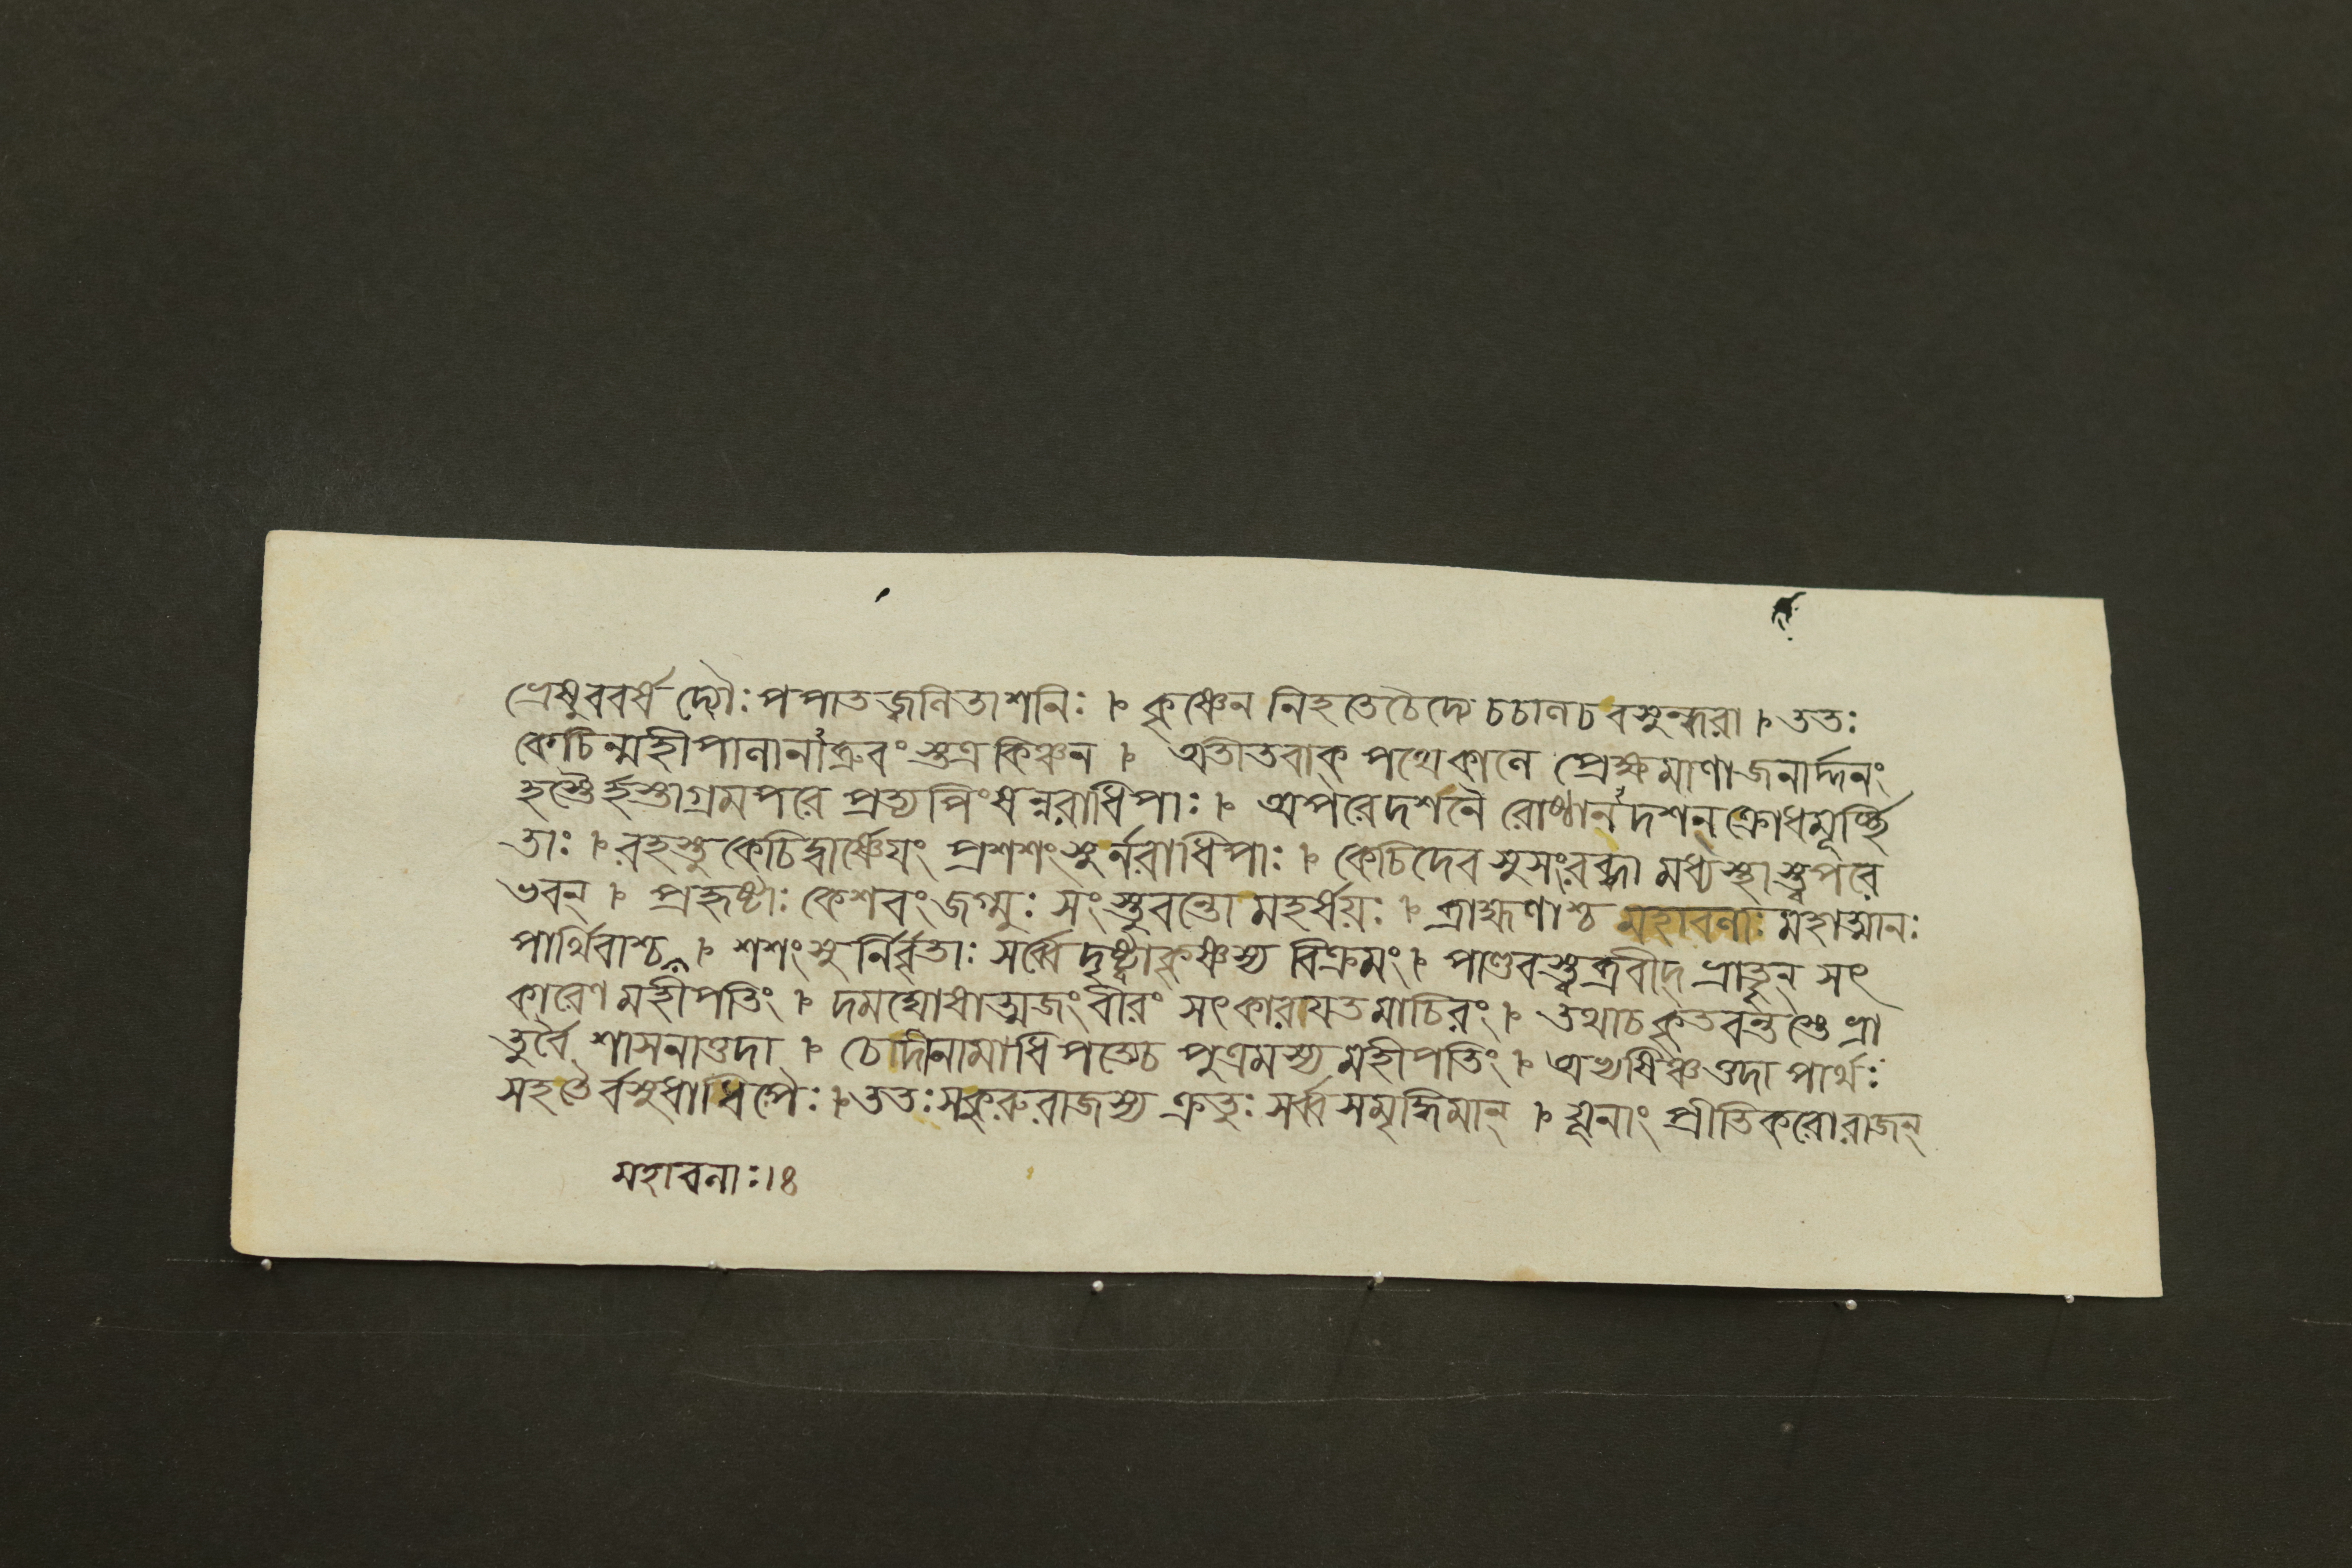 ভ্রেষুববর্ষ দ্যৌঃ পপাতজ্বনিতাশনিঃ । কৃষ্ণেন নিহতেচৈদ্যে চচালচ বসুন্ধরা । ততঃ
কেচিন্মহীপালানাব্রুবংস্তত্র কিঞ্চন । অতীতবাক্ পথেকালে প্রেক্ষমাণাজনার্দ্দনং
হস্তৈর্হস্তাগ্রমপরে প্রত্যপিংষন্নরাধিপাঃ । অপরেদশনৈ রোষ্ঠানদশন্ ক্রোধমূর্চ্ছি
তাঃ । রহস্তু কেচিদ্বার্ষ্ণেয়ং প্রশশংসুর্নরাধিপাঃ । কেচিদেব সুসংরব্ধা মধ্যস্থাস্ত্বপরে
ভবন্ । প্রহৃষ্টাঃ কেশবংজগ্মুঃ সংস্তুবন্তো মহর্ষয়ঃ । ব্রাহ্মণাশ্চ মহাবলাঃ মহাত্মানঃ
পার্থিবাশ্চ । শশংসুর্নির্বৃতাঃ সর্ব্বে দৃষ্ট্বাকৃষ্ণস্য বিক্রমং । পাণ্ডবস্ত্বব্রবীদ্ ভ্রাতৃন্ সৎ
কারেণ মহীপতিং । দমঘোষাত্মজংবীরং সৎকারয়তমাচিরং । তথাচকৃতবন্তস্তে ভ্রা
তুর্বৈ শাসনাত্তদা । চেদীনামাধিপত্যেচ পুত্রমস্য মহীপতিং । অভ্যষিঞ্চত্তদা পার্থঃ
সহতৈর্বসুধাধিপৈঃ । ততঃ সকুরুরাজস্য ক্রতুঃ সর্ব্বসমৃদ্ধিমান্ । যূনাং প্রীতিকরোরাজন্
মহাবলাঃ।৪